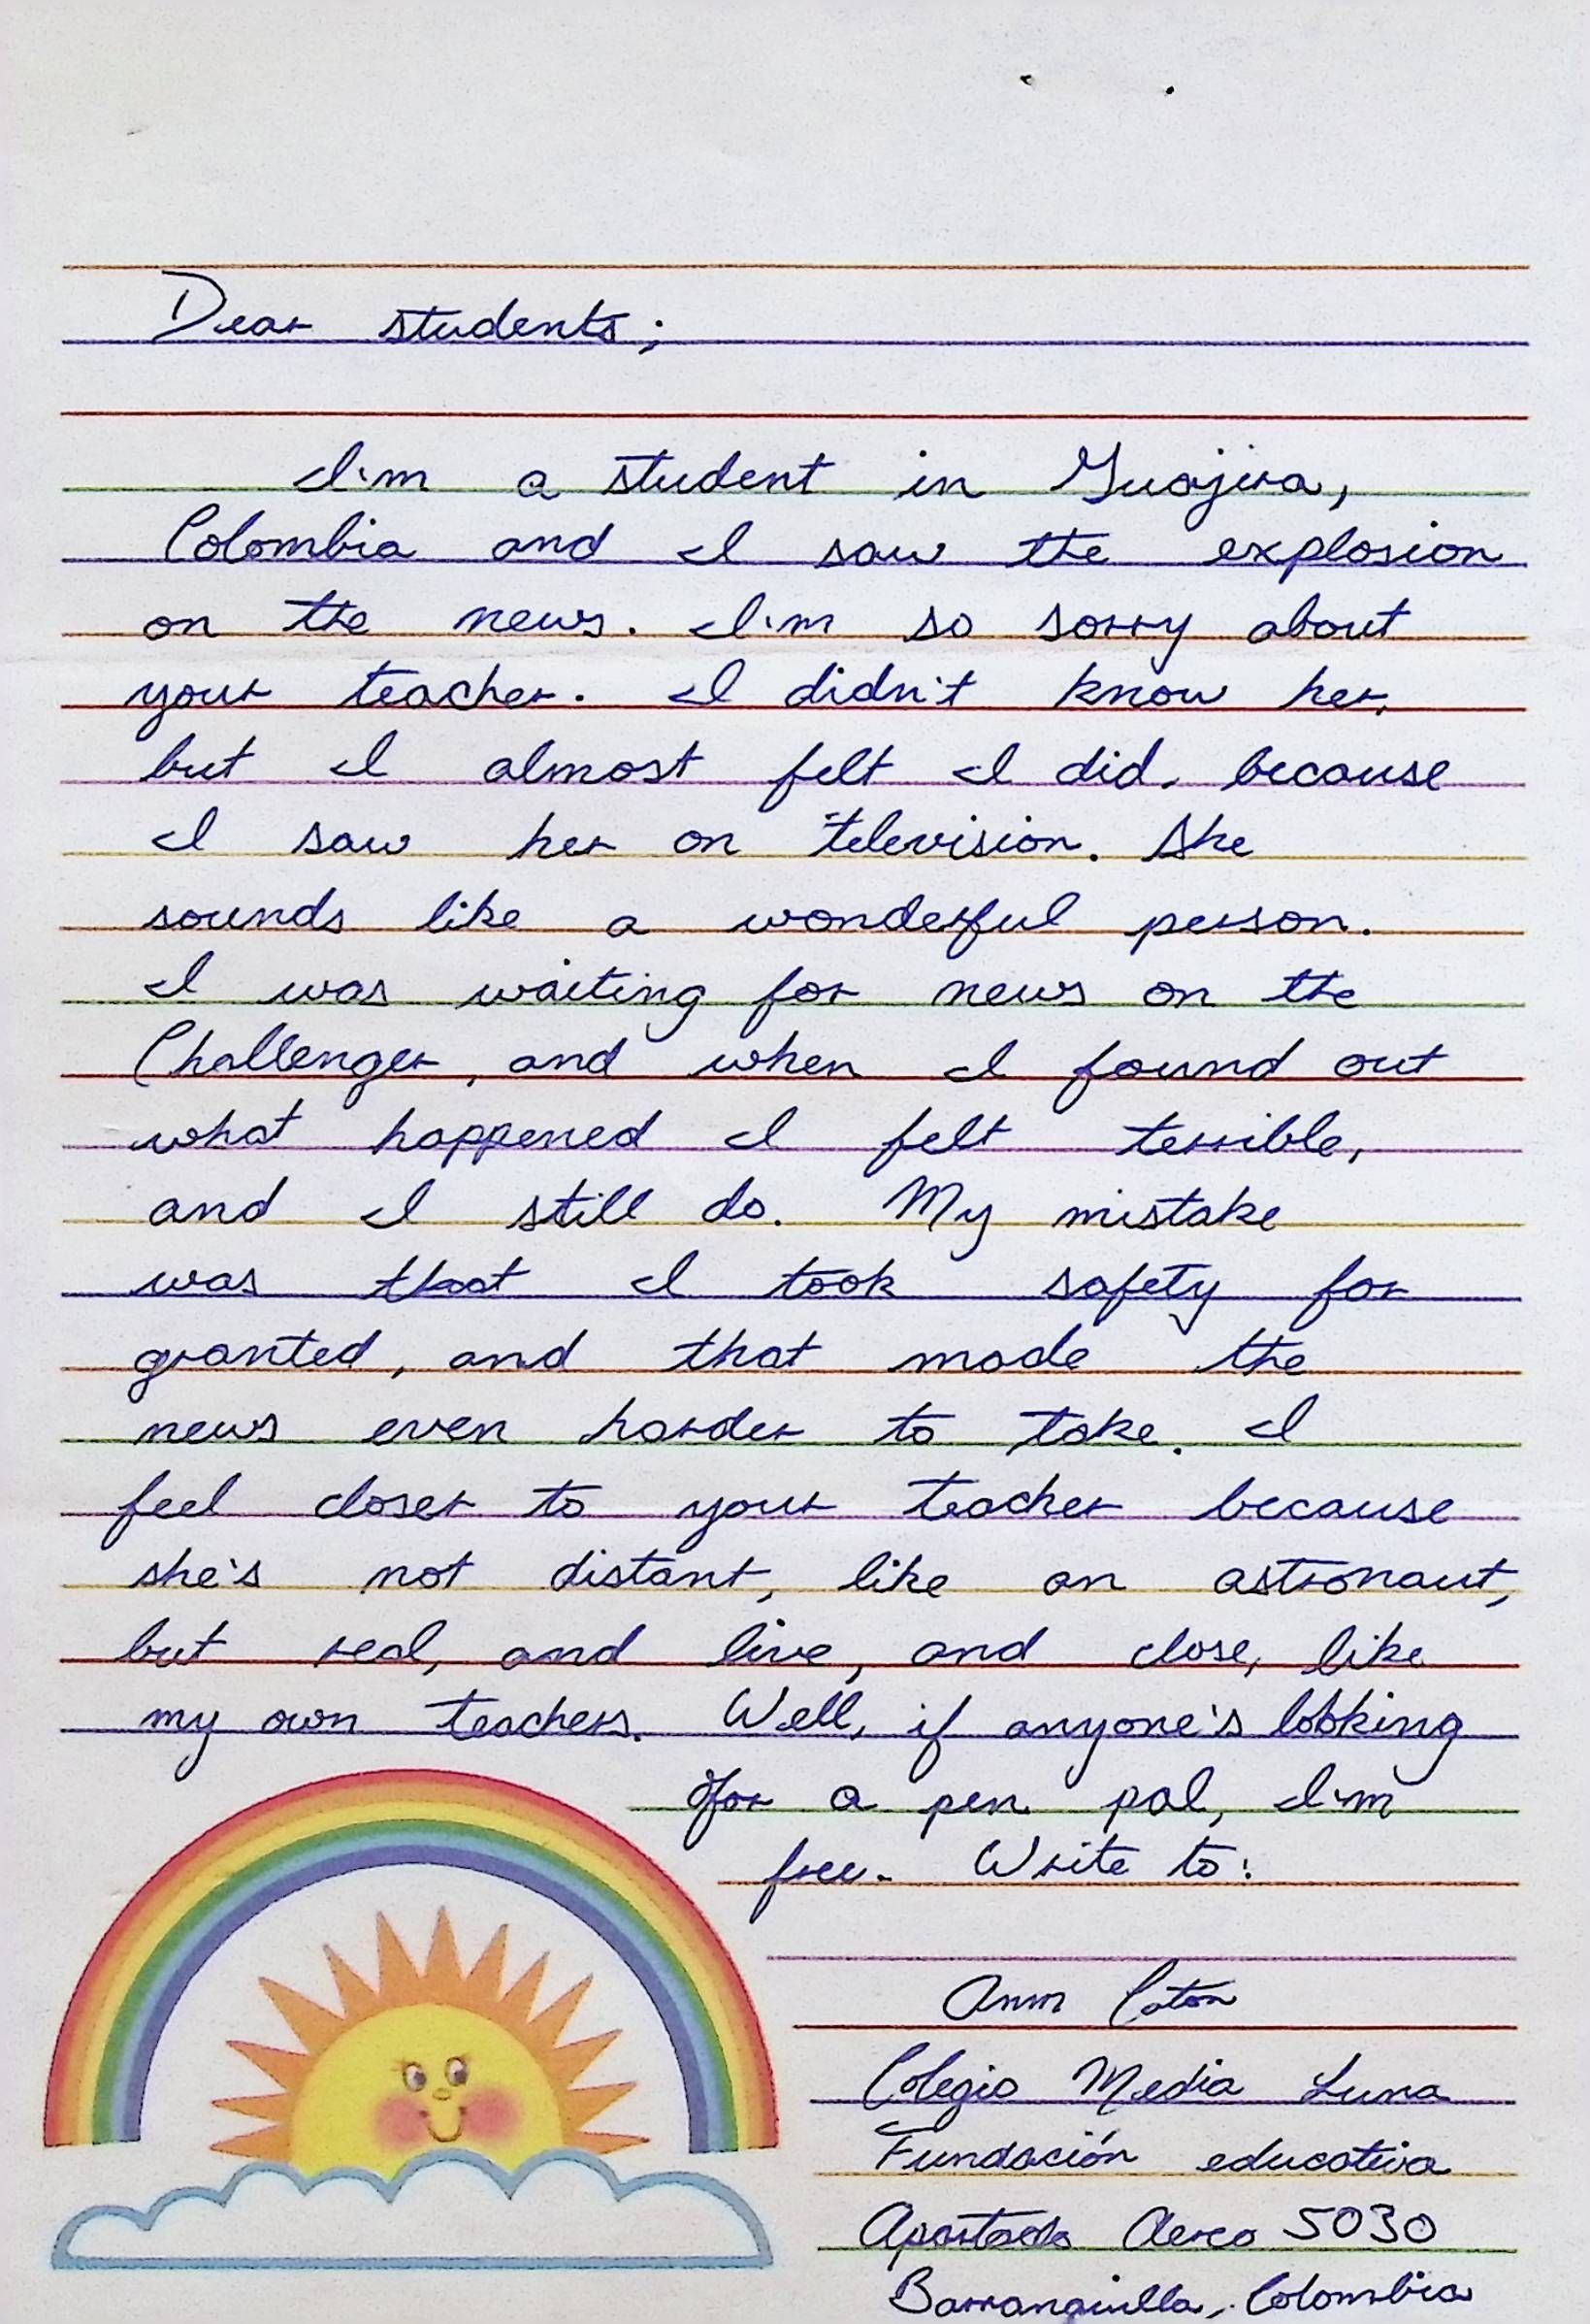 Dear students;
I'm a student in Guajira,
Colombia and I saw the explosion
on the news. I'm so sorry about
your teacher. I didn't know her,
but I almost felt I did, because
I saw her on television. She
sounds like a wonderful person.
I was waiting for news on the
Challenger, and when I found out
what happened I felt terrible,
and I still do. My mistake
was that I took safety for
granted, and that made the
news even harder to take. I
feel closer to your teacher because
she's not distant, like an astronaut,
but real, and live, and close, like
my own teachers. Well, if anyone's looking
for a pen pal, I'm
free. Write to:
Ann Caton
Colegio Media Luna
Fundación educativa
Apartado Aereo 5030
Barranquilla, Colombia